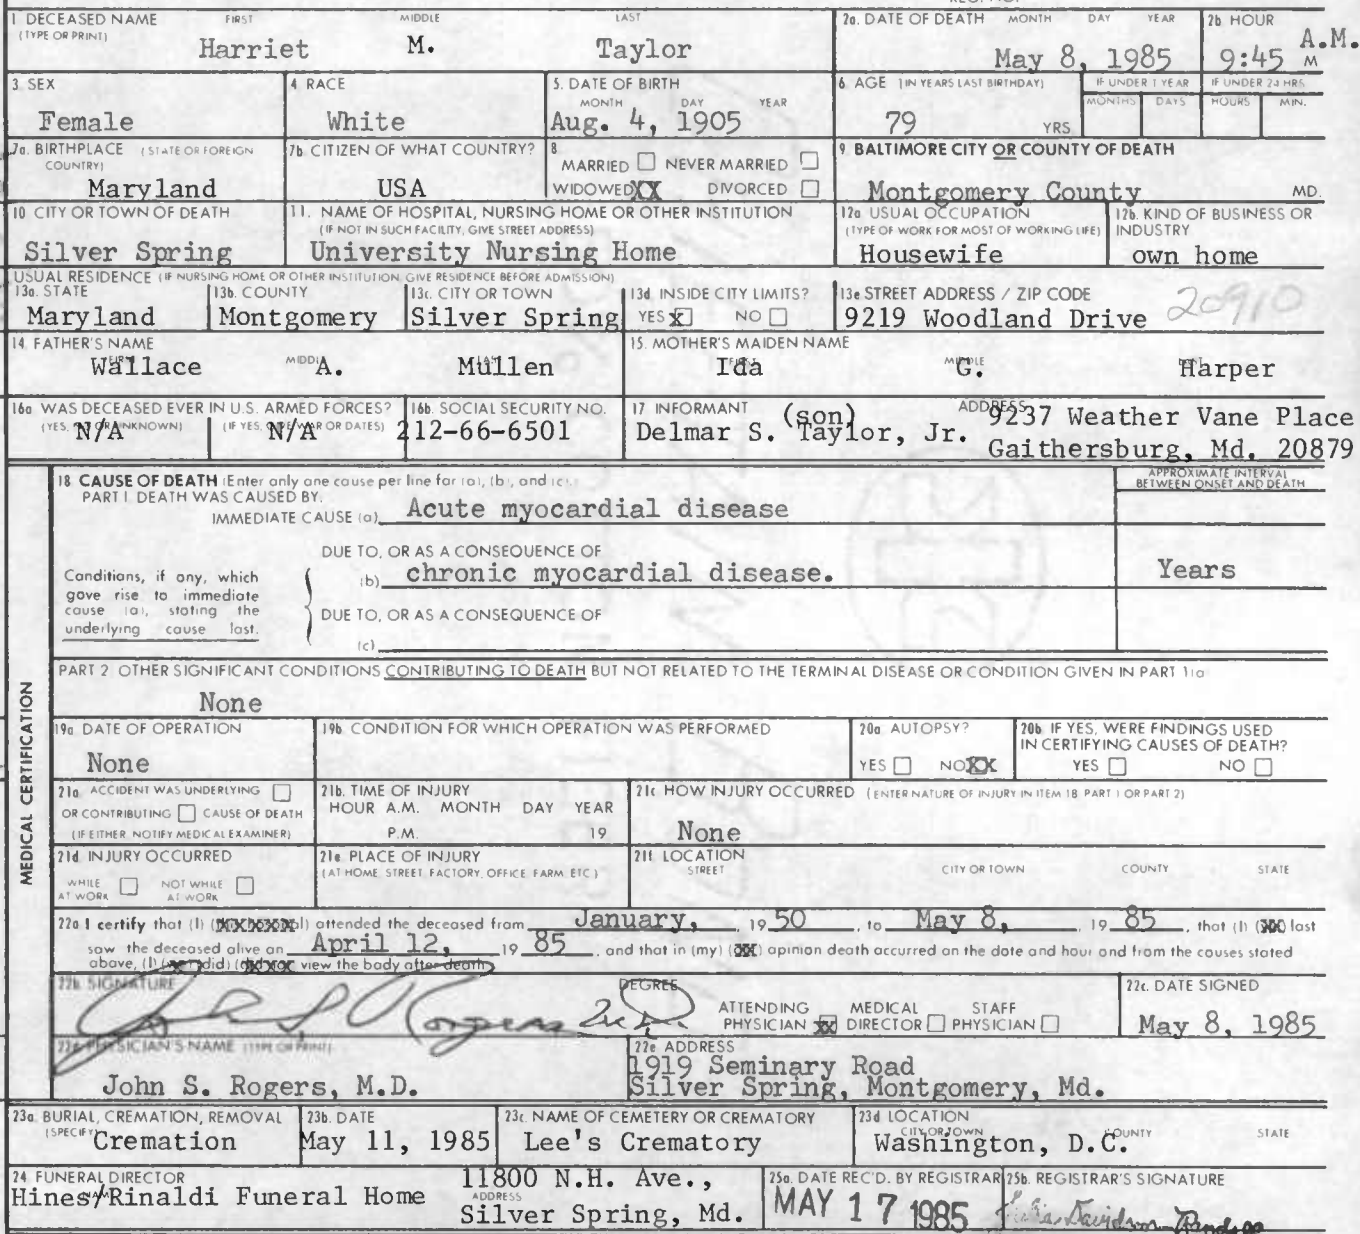 1 DECEASED NAME FIRST MIDDLE LAST
(TYPE OR PRINT)
Harriet M. Taylor
2a. DATE OF DEATH MONTH DAY YEAR
May 8, 1985
2b HOUR
9:45 A.M.
M
3 SEX
Female
4 RACE
White
5. DATE OF BIRTH
MONTH DAY YEAR
Aug. 4, 1905
6 AGE (IN YEARS LAST BIRTHDAY)
79 YRS
IF UNDER 1 YEAR
MONTHS DAYS
IF UNDER 24 HRS.
HOURS MIN.
7a. BIRTHPLACE (STATE OR FOREIGN
COUNTRY)
Maryland
7b. CITIZEN OF WHAT COUNTRY?
USA
8
MARRIED NEVER MARRIED
WIDOWED XX DIVORCED
9. BALTIMORE CITY OR COUNTY OF DEATH
Montgomery County MD.
10 CITY OR TOWN OF DEATH
Silver Spring
11. NAME OF HOSPITAL, NURSING HOME OR OTHER INSTITUTION
(IF NOT IN SUCH FACILITY, GIVE STREET ADDRESS)
University Nursing Home
12a USUAL OCCUPATION
(TYPE OF WORK FOR MOST OF WORKING LIFE)
Housewife
12b. KIND OF BUSINESS OR
INDUSTRY
own home
USUAL RESIDENCE (IF NURSING HOME OR OTHER INSTITUTION GIVE RESIDENCE BEFORE ADMISSION)
13a. STATE
Maryland
13b. COUNTY
Montgomery
13c. CITY OR TOWN
Silver Spring
13d. INSIDE CITY LIMITS?
YES X NO
13e STREET ADDRESS / ZIP CODE
9219 Woodland Drive 20910
14. FATHER'S NAME
FIRST MIDDLE LAST
Wallace A. Mullen
15. MOTHER'S MAIDEN NAME
FIRST MIDDLE LAST
Ida G. Harper
16a WAS DECEASED EVER IN U.S. ARMED FORCES?
(YES, NO OR UNKNOWN) (IF YES, GIVE WAR OR DATES)
N/A N/A
16b. SOCIAL SECURITY NO.
212-66-6501
17 INFORMANT (son) ADDRESS
Delmar S. Taylor, Jr.
9237 Weather Vane Place
Gaithersburg, Md. 20879
MEDICAL CERTIFICATION
18 CAUSE OF DEATH (Enter only one cause per line for (a), (b), and (c).)
PART I DEATH WAS CAUSED BY:
IMMEDIATE CAUSE (a) Acute myocardial disease
APPROXIMATE INTERVAL
BETWEEN ONSET AND DEATH
Conditions, if any, which
gove rise to immediate
cause (a), stating the
underlying cause last.
DUE TO, OR AS A CONSEQUENCE OF
(b) chronic myocardial disease. Years
DUE TO, OR AS A CONSEQUENCE OF
(c)
PART 2 OTHER SIGNIFICANT CONDITIONS CONTRIBUTING TO DEATH BUT NOT RELATED TO THE TERMINAL DISEASE OR CONDITION GIVEN IN PART 1(a)
None
19a DATE OF OPERATION
None
19b CONDITION FOR WHICH OPERATION WAS PERFORMED
20a AUTOPSY?
YES NO XX
20b IF YES, WERE FINDINGS USED
IN CERTIFYING CAUSES OF DEATH?
YES NO
21a. ACCIDENT WAS UNDERLYING
OR CONTRIBUTING CAUSE OF DEATH
(IF EITHER NOTIFY MEDICAL EXAMINER)
21b. TIME OF INJURY
HOUR A.M. MONTH DAY YEAR
P.M. 19
21c HOW INJURY OCCURRED (ENTER NATURE OF INJURY IN ITEM 18 PART 1 OR PART 2)
None
21d INJURY OCCURRED
WHILE AT WORK NOT WHILE AT WORK
21e PLACE OF INJURY
(AT HOME STREET FACTORY, OFFICE FARM ETC)
21f LOCATION
STREET CITY OR TOWN COUNTY STATE
22a I certify that (I) attended the deceased from January, 19 50, to May 8, 19 85, that (I) last
saw the deceased alive on April 12, 19 85, and that in (my) opinion death occurred on the date and hour and from the causes stated
above, (I) (did) view the body after death
22b. SIGNATURE DEGREE
John S. Rogers M.D.
ATTENDING PHYSICIAN XX MEDICAL DIRECTOR STAFF PHYSICIAN
22c. DATE SIGNED
May 8, 1985
22d PHYSICIAN'S NAME (TYPE OR PRINT)
John S. Rogers, M.D.
22e ADDRESS
1919 Seminary Road
Silver Spring, Montgomery, Md.
23a. BURIAL, CREMATION, REMOVAL
(SPECIFY) Cremation
23b. DATE
May 11, 1985
23c NAME OF CEMETERY OR CREMATORY
Lee's Crematory
23d LOCATION
CITY OR TOWN COUNTY STATE
Washington, D.C.
24 FUNERAL DIRECTOR
Hines/Rinaldi Funeral Home
11800 N.H. Ave.,
ADDRESS
Silver Spring, Md.
25a. DATE REC'D. BY REGISTRAR
MAY 17 1985
25b. REGISTRAR'S SIGNATURE